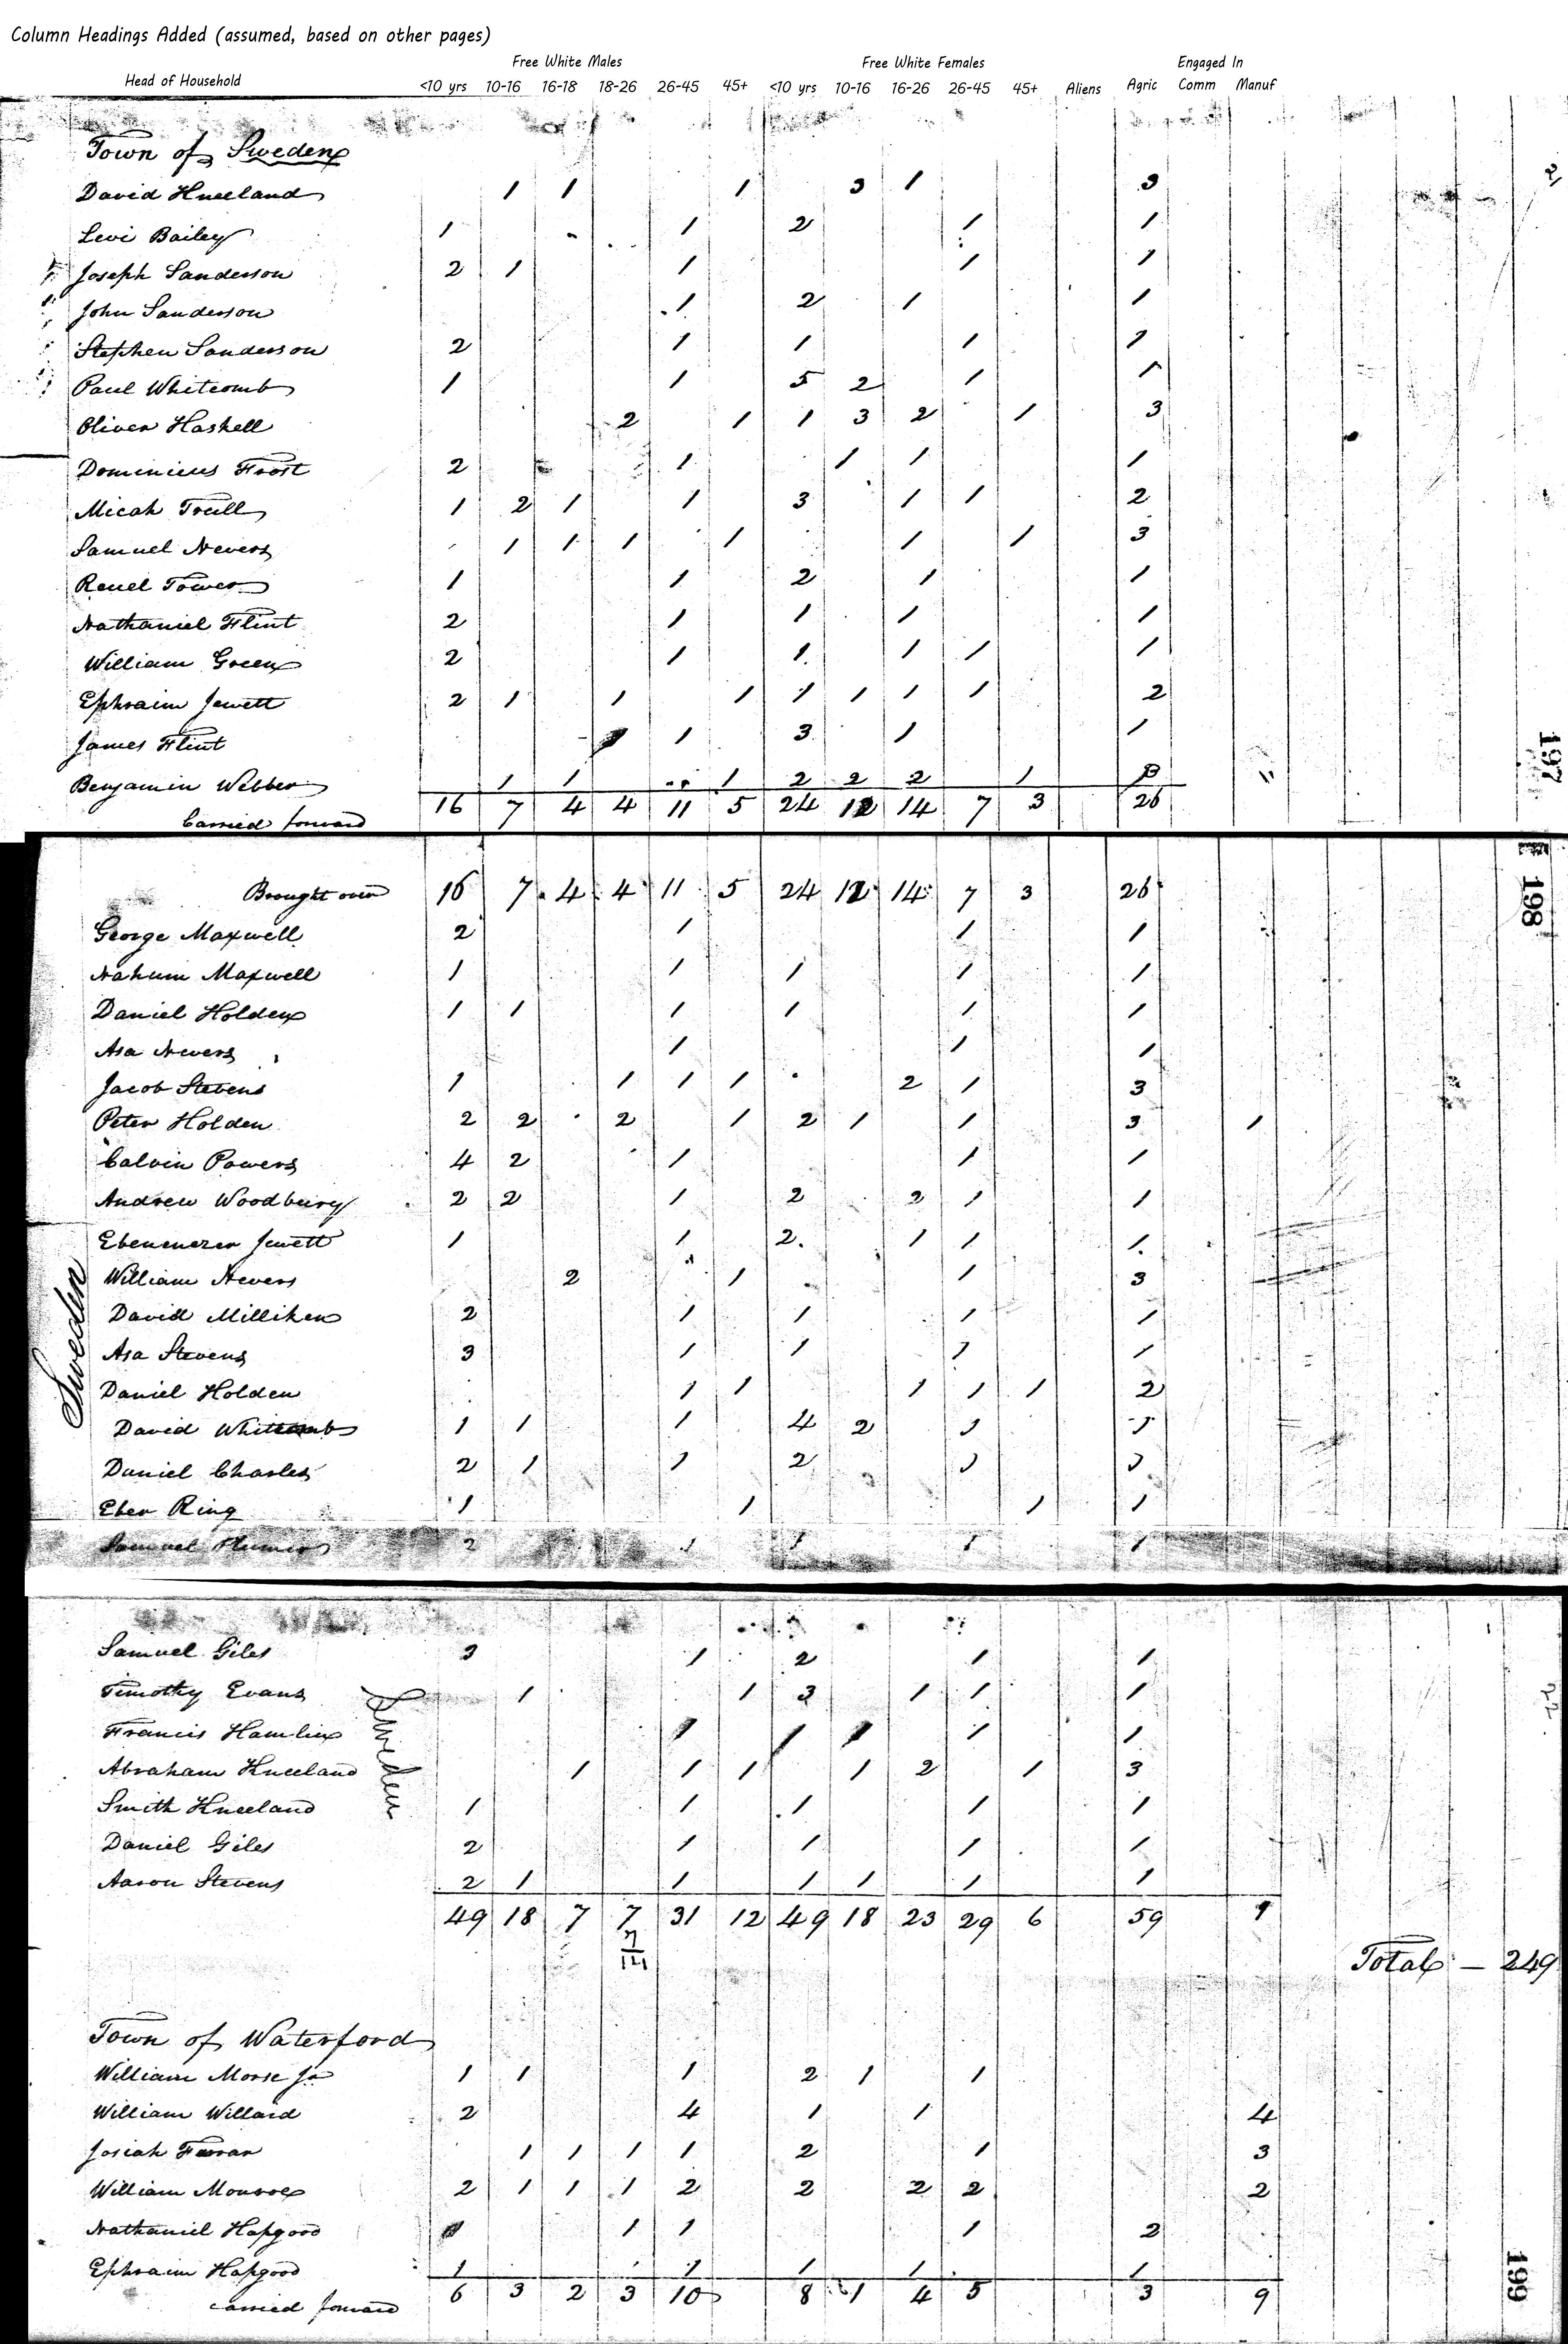 Column Headings Added (assumed, based on other pages)
Free White Males Free White Females Engaged In
Head of Household <10 yrs 10-16 16-18 18-26 26-45 45+ <10 yrs 10-16 16-26 26-45 45+ Aliens Agric Comm Manuf
Town of Sweden
David Kneeland 1 1 1 3 1 3
Levi Bailey 1 1 2 1 1
Joseph Sanderson 2 1 1 1 1
John Sanderson 1 2 1 1
Stephen Sanderson 2 1 1 1 1
Paul Whitcomb 1 1 5 2 1 1
Oliver Haskell 2 1 1 3 2 1 3
Dominicus Frost 2 1 1 1 1
Micah Trull 1 2 1 1 3 1 1 2
Samuel Nevers 1 1 1 1 1 1 3
Reuel Tower 1 1 2 1 1
Nathaniel Flint 2 1 1 1 1
William Green 2 1 1 1 1 1
Ephraim Jewett 2 1 1 1 1 1 1 1 2
James Flint 1 3 1 1
Benjamin Webber 1 1 1 2 2 2 1
16 7 4 4 11 5 24 12 14 7 3 26
Carried forward
197
Brought over 16 7 4 4 11 5 24 12 14 7 3 26
198
George Maxwell 2 1 1 1
Nahum Maxwell 1 1 1 1 1
Daniel Holden 1 1 1 1 1 1
Asa Nevers 1 1 1
Jacob Stevens 1 1 1 1 2 1 3
Peter Holden 2 2 2 1 2 1 1 3 1
Calvin Powers 4 2 1 1 1
Andrew Woodbury 2 2 1 2 2 1 1
Ebenenezer Jewett 1 1 2 1 1 1
William Nevers 2 1 1 3
David Milliken 2 1 1 1 1
Asa Stevens 3 1 1 1 1
Daniel Holden 1 1 1 1 1 2
David Whitcomb 1 1 1 4 2 1 1
Daniel Charles 2 1 1 2 1 1
Eber Ring 1 1 1 1
Samuel Plumer 2 1 1 1 1
Sweden
Samuel Giles 3 1 2 1 1
Timothy Evans 1 1 3 1 1 1
Francis Hamlin 1 1 1 1 1
Abraham Kneeland 1 1 1 1 2 1 3
Smith Kneeland 1 1 1 1 1
Daniel Giles 2 1 1 1 1
Aaron Stevens 2 1 1 1 1 1 1
Sweden
49 18 7 7 31 12 49 18 23 29 6 59 1
7
14
Total - 249
Town of Waterford
William Morse Jr 1 1 1 2 1 1
William Willard 2 4 1 1 4
Josiah Farrar 1 1 1 1 2 1 3
William Monroe 2 1 1 1 2 2 2 2 2
Nathaniel Hapgood 1 1 1 2
Ephraim Hapgood 1 1 1 1 1
6 3 2 3 10 8 1 4 5 3 9
carried forward
199